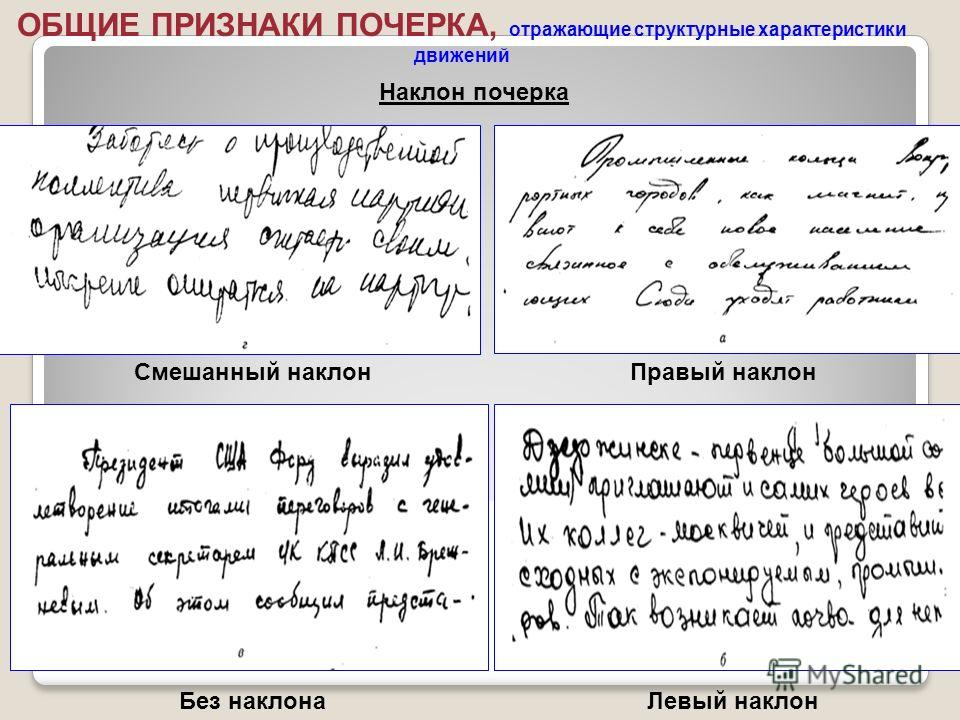 ОБЩИЕ ПРИЗНАКИ ПОЧЕРКА, отражающие структурные характеристики
движений
Наклон почерка
Заботясь о производственной
коллектива первичная партийн
организация считает своим
опираться на партгр
г
Промышленные кольца вокр
рортных городов, как магнит, п
вают к себе новое население
связанное с обслуживанием
ющих Сюди уходят работники
а
Смешанный наклон
Правый наклон
Президент США Форд выразил удов-
летворение итогами переговоров с гене-
ральным секретарем ЦК КПСС Л.И. Бреж-
невым. Об этом сообщил предста-
в
Дзержинске - первенце большой со
мии, приглашают и самих героев ве
Их коллег - москвичей, и представий
сходных с экспонируемым, промыш
дов. Так возникает почва для неп
б
Без наклона
Левый наклон
MyShared